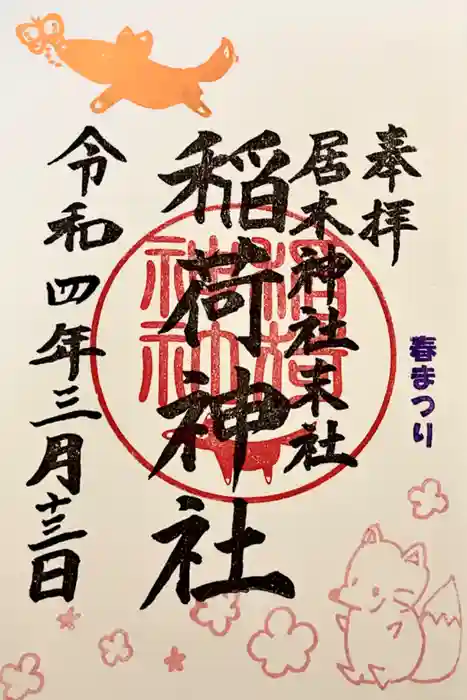 奉拝
春まつり
居木神社末社
稲荷神社
令和四年三月十三日